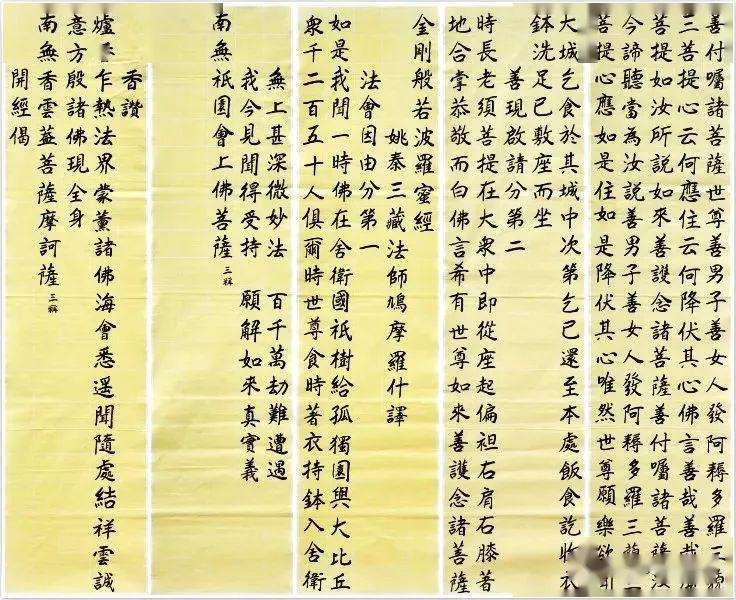 香讚
爐乍熱法界蒙薰諸佛海會悉遥聞隨處結祥雲誠
意方殷諸佛現全身
南無香雲蓋菩薩摩訶薩 三稱
開經偈
無上甚深微妙法 百千萬劫難遭遇
我今見聞得受持 願解如來真實義
南無祇園會上佛菩薩 三稱
金剛般若波羅蜜經
姚秦三藏法師鳩摩羅什譯
法會因由分第一
如是我聞一時佛在舍衛國祇樹給孤獨園與大比丘
衆千二百五十人俱爾時世尊食時著衣持鉢入舍衛
大城乞食於其城中次第乞已還至本處飯食訖收衣
鉢洗足已敷座而坐
善現啟請分第二
時長老須菩提在大衆中即從座起偏袒右肩右膝著
地合掌恭敬而白佛言希有世尊如來善護念諸菩薩
善付囑諸菩薩世尊善男子善女人發阿耨多羅三藐
三菩提心云何應住云何降伏其心佛言善哉善哉
菩提如汝所說如來善護念諸菩薩善付囑諸菩薩汝
今諦聽當為汝說善男子善女人發阿耨多羅三
菩提心應如是住如是降伏其心唯然世尊願樂欲